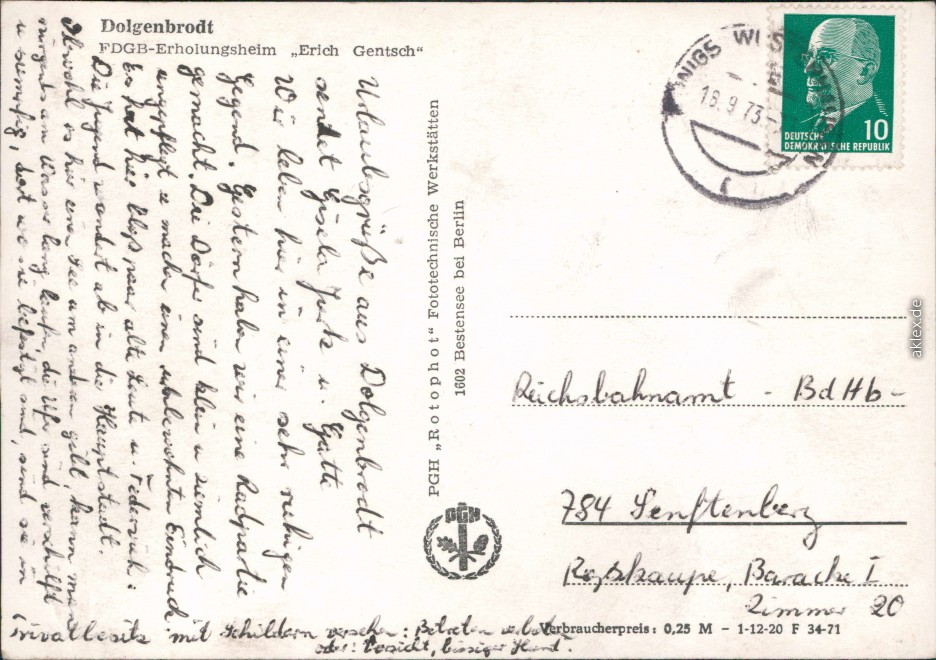 Dolgenbrodt
FDGB-Erholungsheim „Erich Gentsch“
Urlaubsgrüße aus Dolgenbrodt
sendet Gisela u. Gatte
Wir leben hier in einer sehr ruhigen
Gegend. Gestern haben wir eine Radpartie
gemacht. Die Dörfer sind klein u ziemlich
ungepflegt u machen einen unbewohnten Eindruck
Es hat hier bloß paar alte Leute u. Federvieh.
Die Jugend wandert ab in die Hauptstadt.
Obwohl es hier einen See am anderen gibt, kann man
nirgends am Wasser lang laufen, die Ufer sind verschilft
u sumpfig, dort wo sie befestigt sind, sind sie in
Privatbesitz mit Schildern versehen: Betreten verboten
oder: Vorsicht, bissiger Hund.
PGH „Rotophot“ Fototechnische Werkstätten
1602 Bestensee bei Berlin
PGH
KÖNIGS WUSTERHAUSEN
18.9.73
10
DEUTSCHE
DEMOKRATISCHE REPUBLIK
Reichsbahnamt - BdHb -
784 Senftenberg
Roßkaupe, Baracke I
Zimmer 20
Verbraucherpreis: 0,25 M - 1-12-20 F 34-71
aklex.de